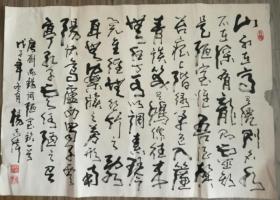 山不在高有仙則名水
不在深有龍則靈斯
是陋室惟吾德馨
苔痕上階綠草色入簾
青談笑有鴻儒往來
無白丁可以調素琴
閱金經無絲竹之亂
耳無案牘之勞形南
陽諸葛廬西蜀子雲
亭孔子云何陋之有
唐劉禹錫陋室銘一首
戊子年